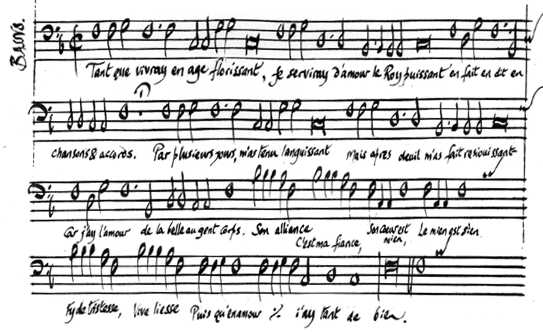 BASSVS.
Tant que vivray en age florissant, Je serviray d'amour le Roy puissant en fait en dit en
chansons & accords. Par plusieurs jours, m'as tenu languissant Mais apres deuil m'as fait resiouissant
Car j'ay l'amour de la belle au gent corps. Son alliance C'est ma fiance, Son cœur est mien, Le mien est sien
Fy de tristesse, Vive liesse Puis qu'en amour ·/. i'ay tant de bien.